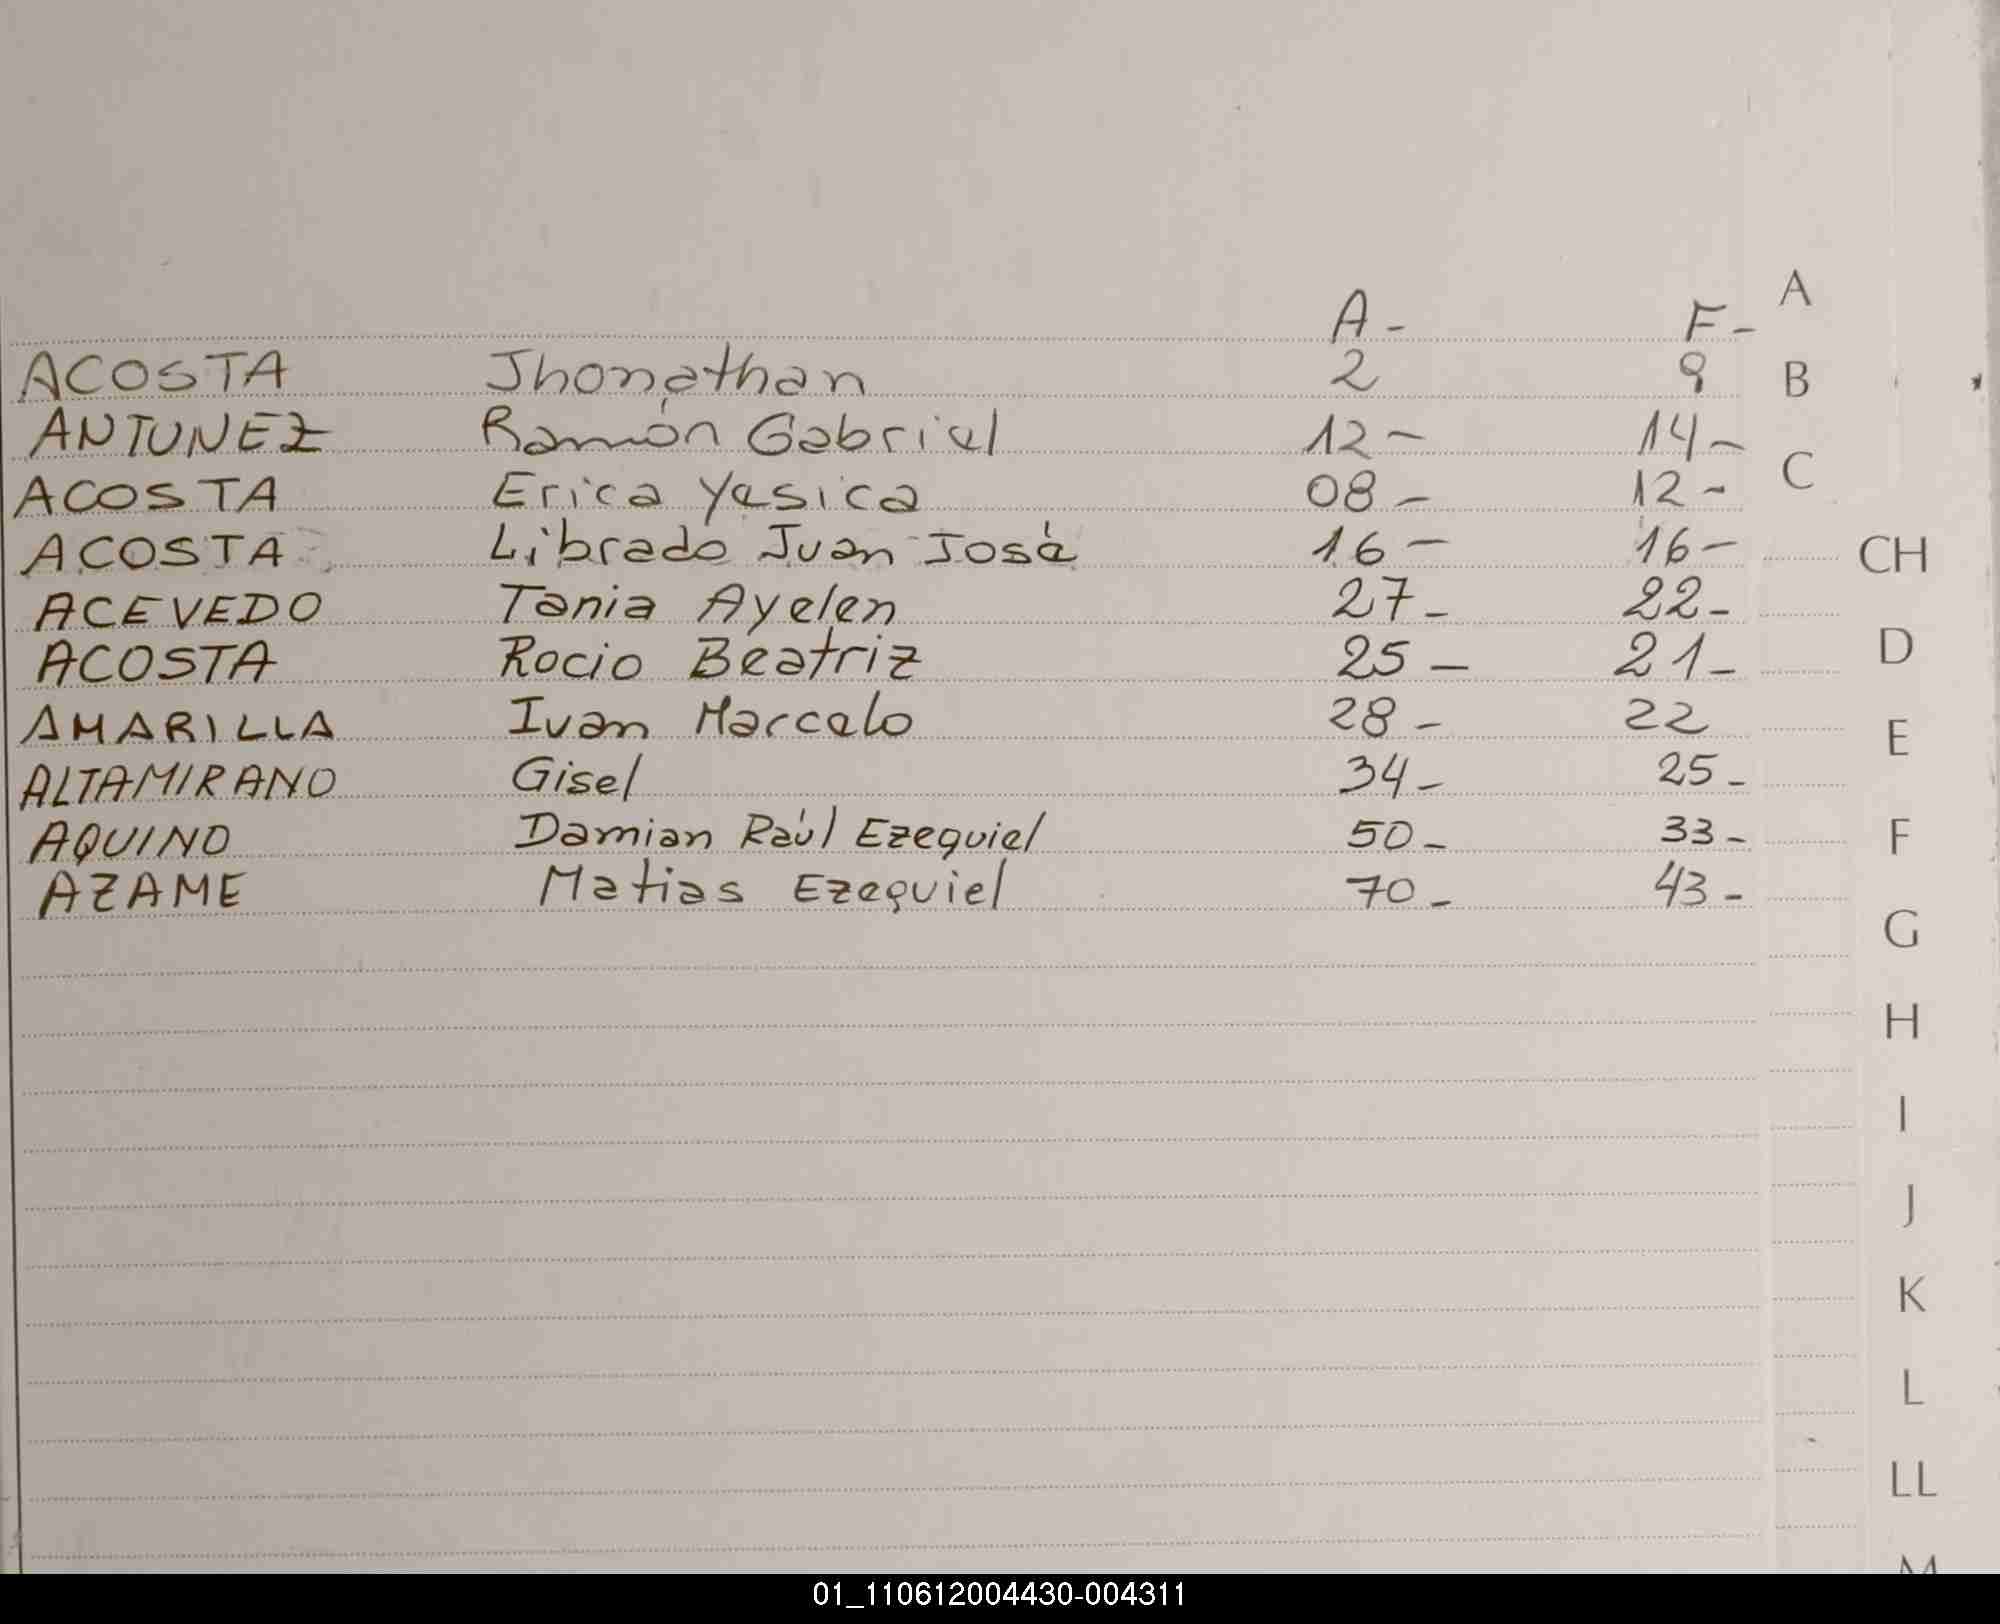 A
A- F-
ACOSTA Jhonathan 2 9 B
ANTUNEZ Ramón Gabriel 12- 14-
ACOSTA Erica Yesica 08- 12- C
ACOSTA Librado Juan José 16- 16- CH
ACEVEDO Tania Ayelen 27- 22-
ACOSTA Rocio Beatriz 25- 21- D
AMARILLA Ivan Marcelo 28- 22 E
ALTAMIRANO Gisel 34- 25-
AQUINO Damian Raúl Ezequiel 50- 33- F
AZAME Matias Ezequiel 70- 43-
G
H
I
J
K
L
LL
M
01_110612004430-004311